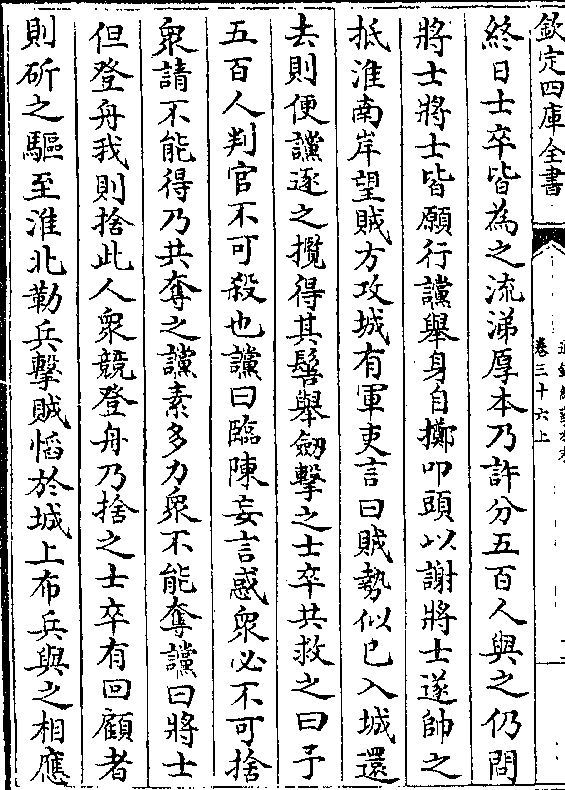 欽定四庫全書
卷三十六上
終日士卒皆為之流涕厚本乃許分五百人與之仍問
將士將士皆願行讜舉身自擲叩頭以謝將士遂帥之
抵淮南岸望賊方攻城有軍吏言曰賊勢似已入城還
去則便讜逐之攬得其髻舉劒擊之士卒共救之曰千
五百人判官不可殺也讜曰臨陳妄言惑衆必不可捨
衆請不能得乃共奪之讜素多力衆不能奪讜曰將士
但登舟我則捨此人衆競登舟乃捨之士卒有回顧者
則斫之驅至淮北勒兵擊賊慆於城上布兵與之相應